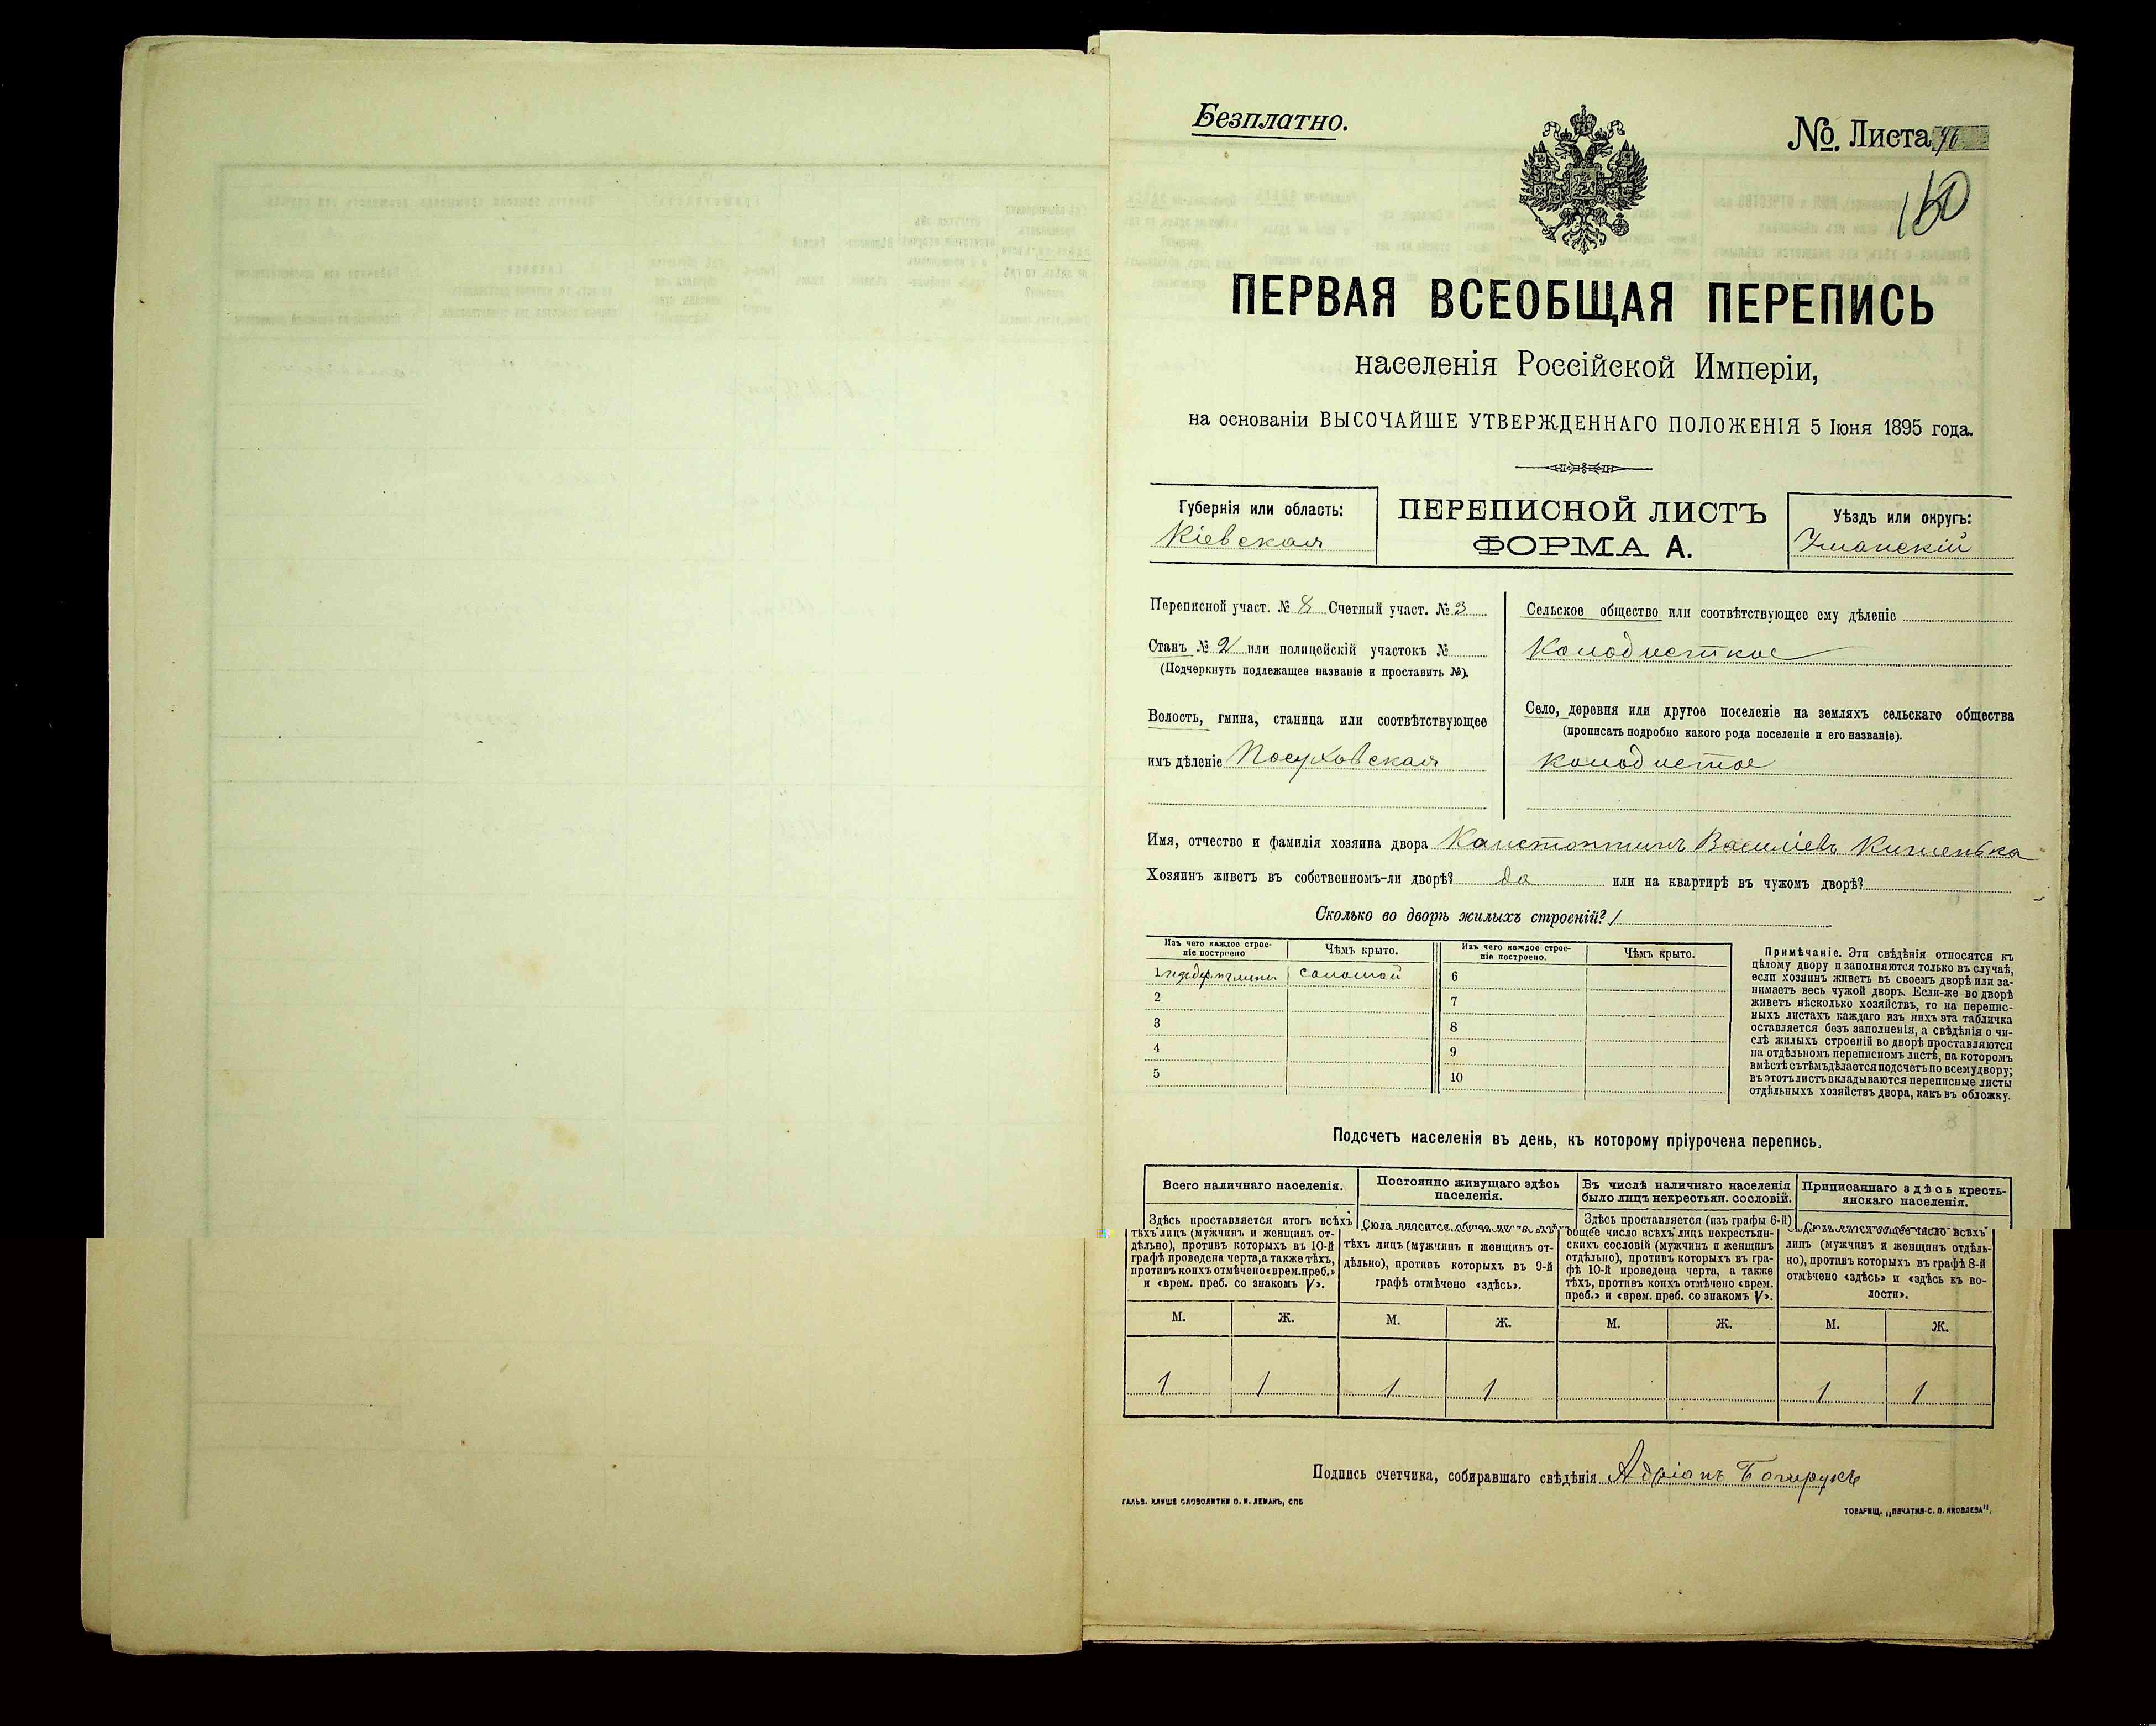 Безплатно.
№. Листа 76
160
ПЕРВАЯ ВСЕОБЩАЯ ПЕРЕПИСЬ
населенія Россійской Имперіи,
на основаніи ВЫСОЧАЙШЕ УТВЕРЖДЕННАГО ПОЛОЖЕНІЯ 5 Іюня 1895 года.
Губернія или область:
Кіевская
ПЕРЕПИСНОЙ ЛИСТЪ
ФОРМА А.
Уѣздъ или округъ:
Уманскій
Переписной участ. № 8 Счетный участ. № 3
Станъ № 2 или полицейскій участокъ №
(Подчеркнуть подлежащее названіе и проставить №).
Волость, гмина, станица или соотвѣтствующее
имъ дѣленіе Посуховская
Сельское общество или соотвѣтствующее ему дѣленіе
Колодисткое
Село, деревня или другое поселеніе на земляхъ сельскаго общества
(прописать подробно какого рода поселеніе и его названіе).
Колодистое
Имя, отчество и фамилія хозяина двора Констонтинъ Василіевъ Кишенька
Хозяинъ живетъ въ собственномъ-ли дворѣ? да или на квартирѣ въ чужомъ дворѣ?
Сколько во дворѣ жилыхъ строеній? 1
Изъ чего каждое строе-
ніе построено
Чѣмъ крыто.
Изъ чего каждое строе-
ніе построено.
Чѣмъ крыто.
1 соломой 6
2 7
3 8
4 9
5 10
Примѣчаніе. Эти свѣдѣнія относятся къ
цѣлому двору и заполняются только въ случаѣ,
если хозяинъ живетъ въ своемъ дворѣ или за-
нимаетъ весь чужой дворъ. Если-же во дворѣ
живетъ нѣсколько хозяйствъ, то на перепис-
ныхъ листахъ каждаго изъ нихъ эта табличка
оставляется безъ заполненія, а свѣдѣнія о чи-
слѣ жилыхъ строеній во дворѣ проставляются
на отдѣльномъ переписномъ листѣ, на которомъ
вмѣстѣ съ тѣмъ дѣлается подсчетъ по всему двору;
въ этотъ листъ вкладываются переписные листы
отдѣльныхъ хозяйствъ двора, какъ въ обложку.
Подсчетъ населенія въ день, къ которому пріурочена перепись.
Всего наличнаго населенія.
Здѣсь проставляется итогъ всѣхъ
тѣхъ лицъ (мужчинъ и женщинъ от-
дѣльно), противъ которыхъ въ 10-й
графѣ проведена черта, а также тѣхъ,
противъ коихъ отмѣчено «врем. преб.»
и «врем. преб. со знакомъ V».
Постоянно живущаго здѣсь
населенія.
Сюда вносится общее число всѣхъ
тѣхъ лицъ (мужчинъ и женщинъ от-
дѣльно), противъ которыхъ въ 9-й
графѣ отмѣчено «здѣсь».
Въ числѣ наличнаго населенія
было лицъ некрестьян. сословій.
Здѣсь проставляется (изъ графы 6-й)
общее число всѣхъ лицъ некрестьян-
скихъ сословій (мужчинъ и женщинъ
отдѣльно), противъ которыхъ въ гра-
фѣ 10-й проведена черта, а также
тѣхъ, противъ коихъ отмѣчено «врем.
преб.» и «врем. преб. со знакомъ V».
Приписаннаго здѣсь кресть-
янскаго населенія.
Сюда вносится общее число всѣхъ
лицъ (мужчинъ и женщинъ отдѣль-
но), противъ которыхъ въ графѣ 8-й
отмѣчено «здѣсь» и «здѣсь къ во-
лости».
М. Ж. М. Ж. М. Ж. М. Ж.
1 1 1 1 1 1
Подпись счетчика, собиравшаго свѣдѣнія Адріанъ
ГАЛЬВ. КЛИШЕ СЛОВОЛИТНИ О. И. ЛЕМАНЪ, СПБ
ТОВАРИЩ. „ПЕЧАТНЯ С. П. ЯКОВЛЕВА".